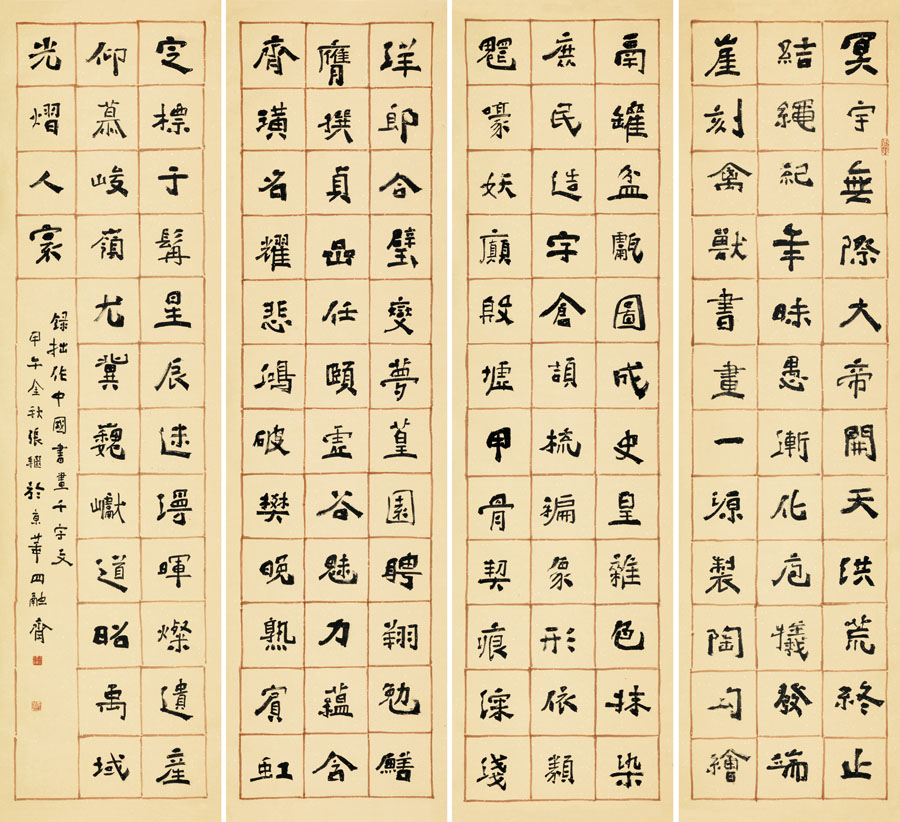 冥宇無際大帝開天洪荒終止
結繩紀年昧愚漸化庖犧發端
崖刻禽獸書畫一源製陶勾繪
鬲罐盆甗圖成史皇雜色抹染
庶民造字倉頡梳編象形依類
嚎妖顛殷墟甲骨契痕深淺
洋郎合璧燮夢篁園聘翔勉鱔
膺撰貞嵒任頤虛谷魅力蘊含
齊璜名耀悲鴻破樊晚熟賓虹
定標于髯星辰迷暉燦遺產
仰慕峻嶺尤冀巍巘道昭禹域
光熠人寰
錄拙作中國書畫千字文
甲午金秋張繼於京華四融齋